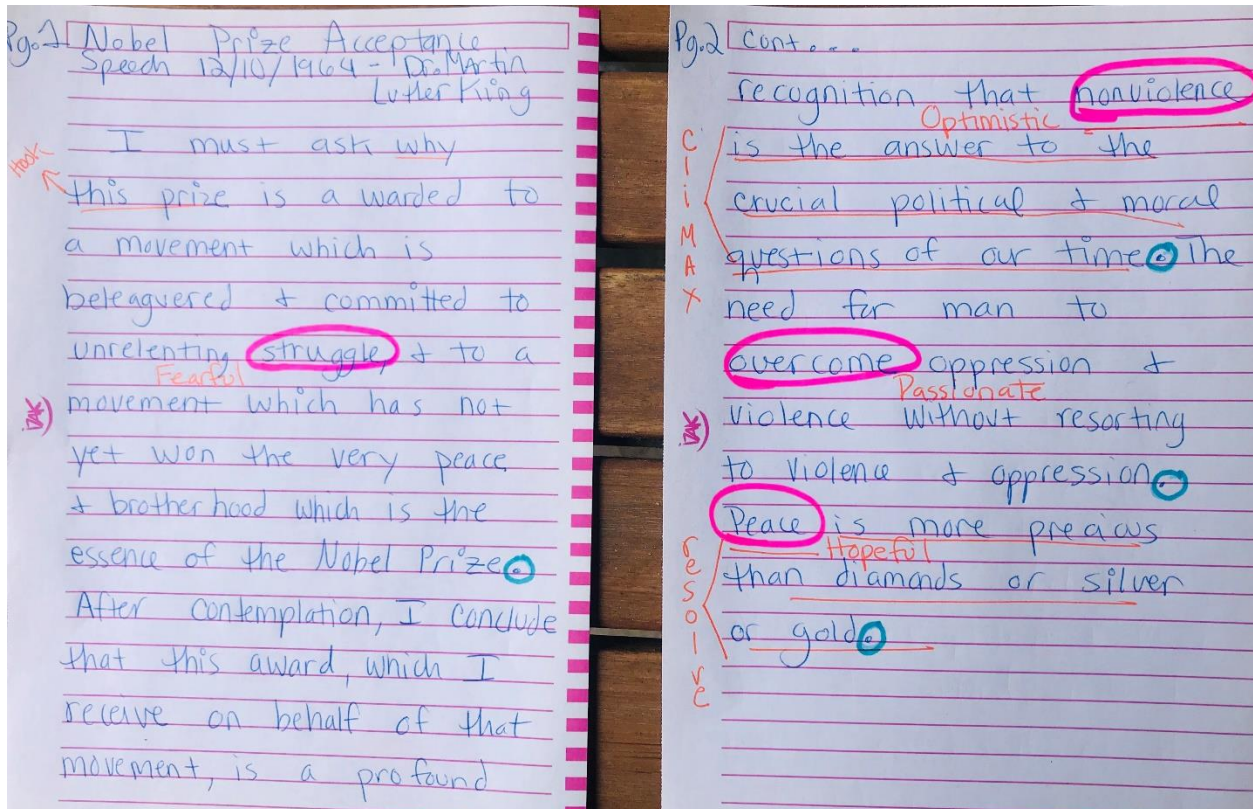 Pg.1 Nobel Prize Acceptance
Speech 12/10/1964 - Dr. Martin
Lutler King
I must ask why
Hook
this prize is a warded to
a movement which is
beleaguered & committed to
unrelenting struggle, & to a
Fearful
movement which has not
yet won the very peace
& brotherhood which is the
essence of the Nobel Prize.
After contemplation, I conclude
that this award, which I
receive on behalf of that
movement, is a profound
Pg.2 cont...
recognition that nonviolence
Optimistic
is the answer to the
crucial political & moral
questions of our time. The
CliMAX
need for man to
overcome oppression &
Passionate
violence without resorting
to violence & oppression.
Peace is more precious
Hopeful
than diamonds or silver
or gold.
resolve